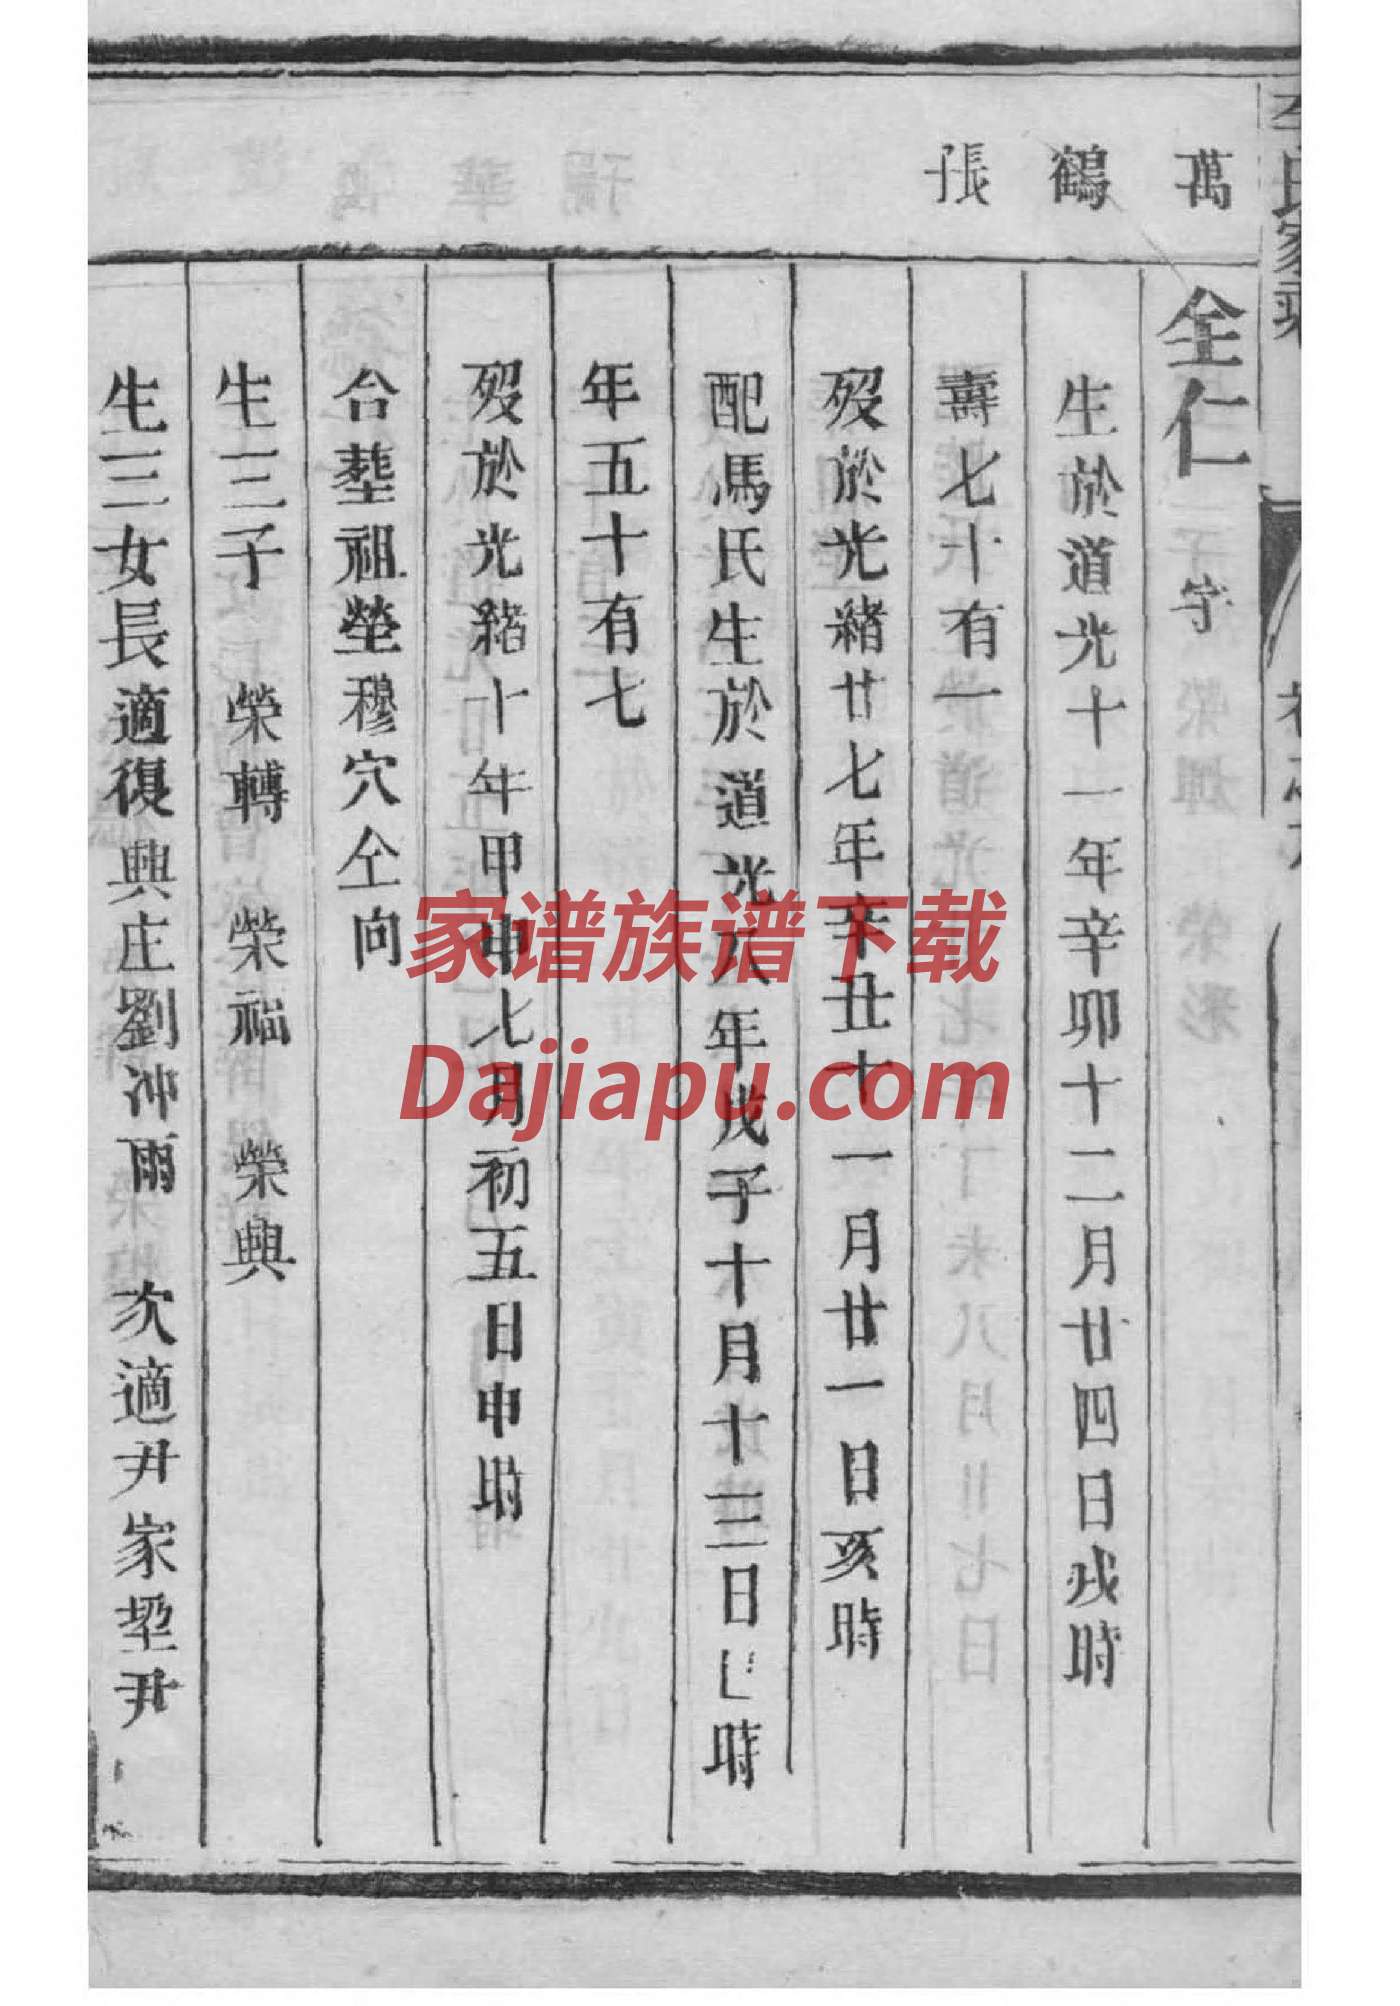 氏家乘
萬
鶴
張
全仁 字
生於道光十一年辛卯十二月廿四日戌時
壽七十有一
歿於光緒廿七年辛丑十一月廿一日亥時
配馬氏生於道光八年戊子十月十三日 時
年五十有七
歿於光緒十年甲申七月初五日申時
合塟祖塋穆穴仝向
生三子 榮轉 榮福 榮興
生三女長適復興庄劉冲雨 次適尹家堊尹
家谱族谱下载
Dajiapu.com